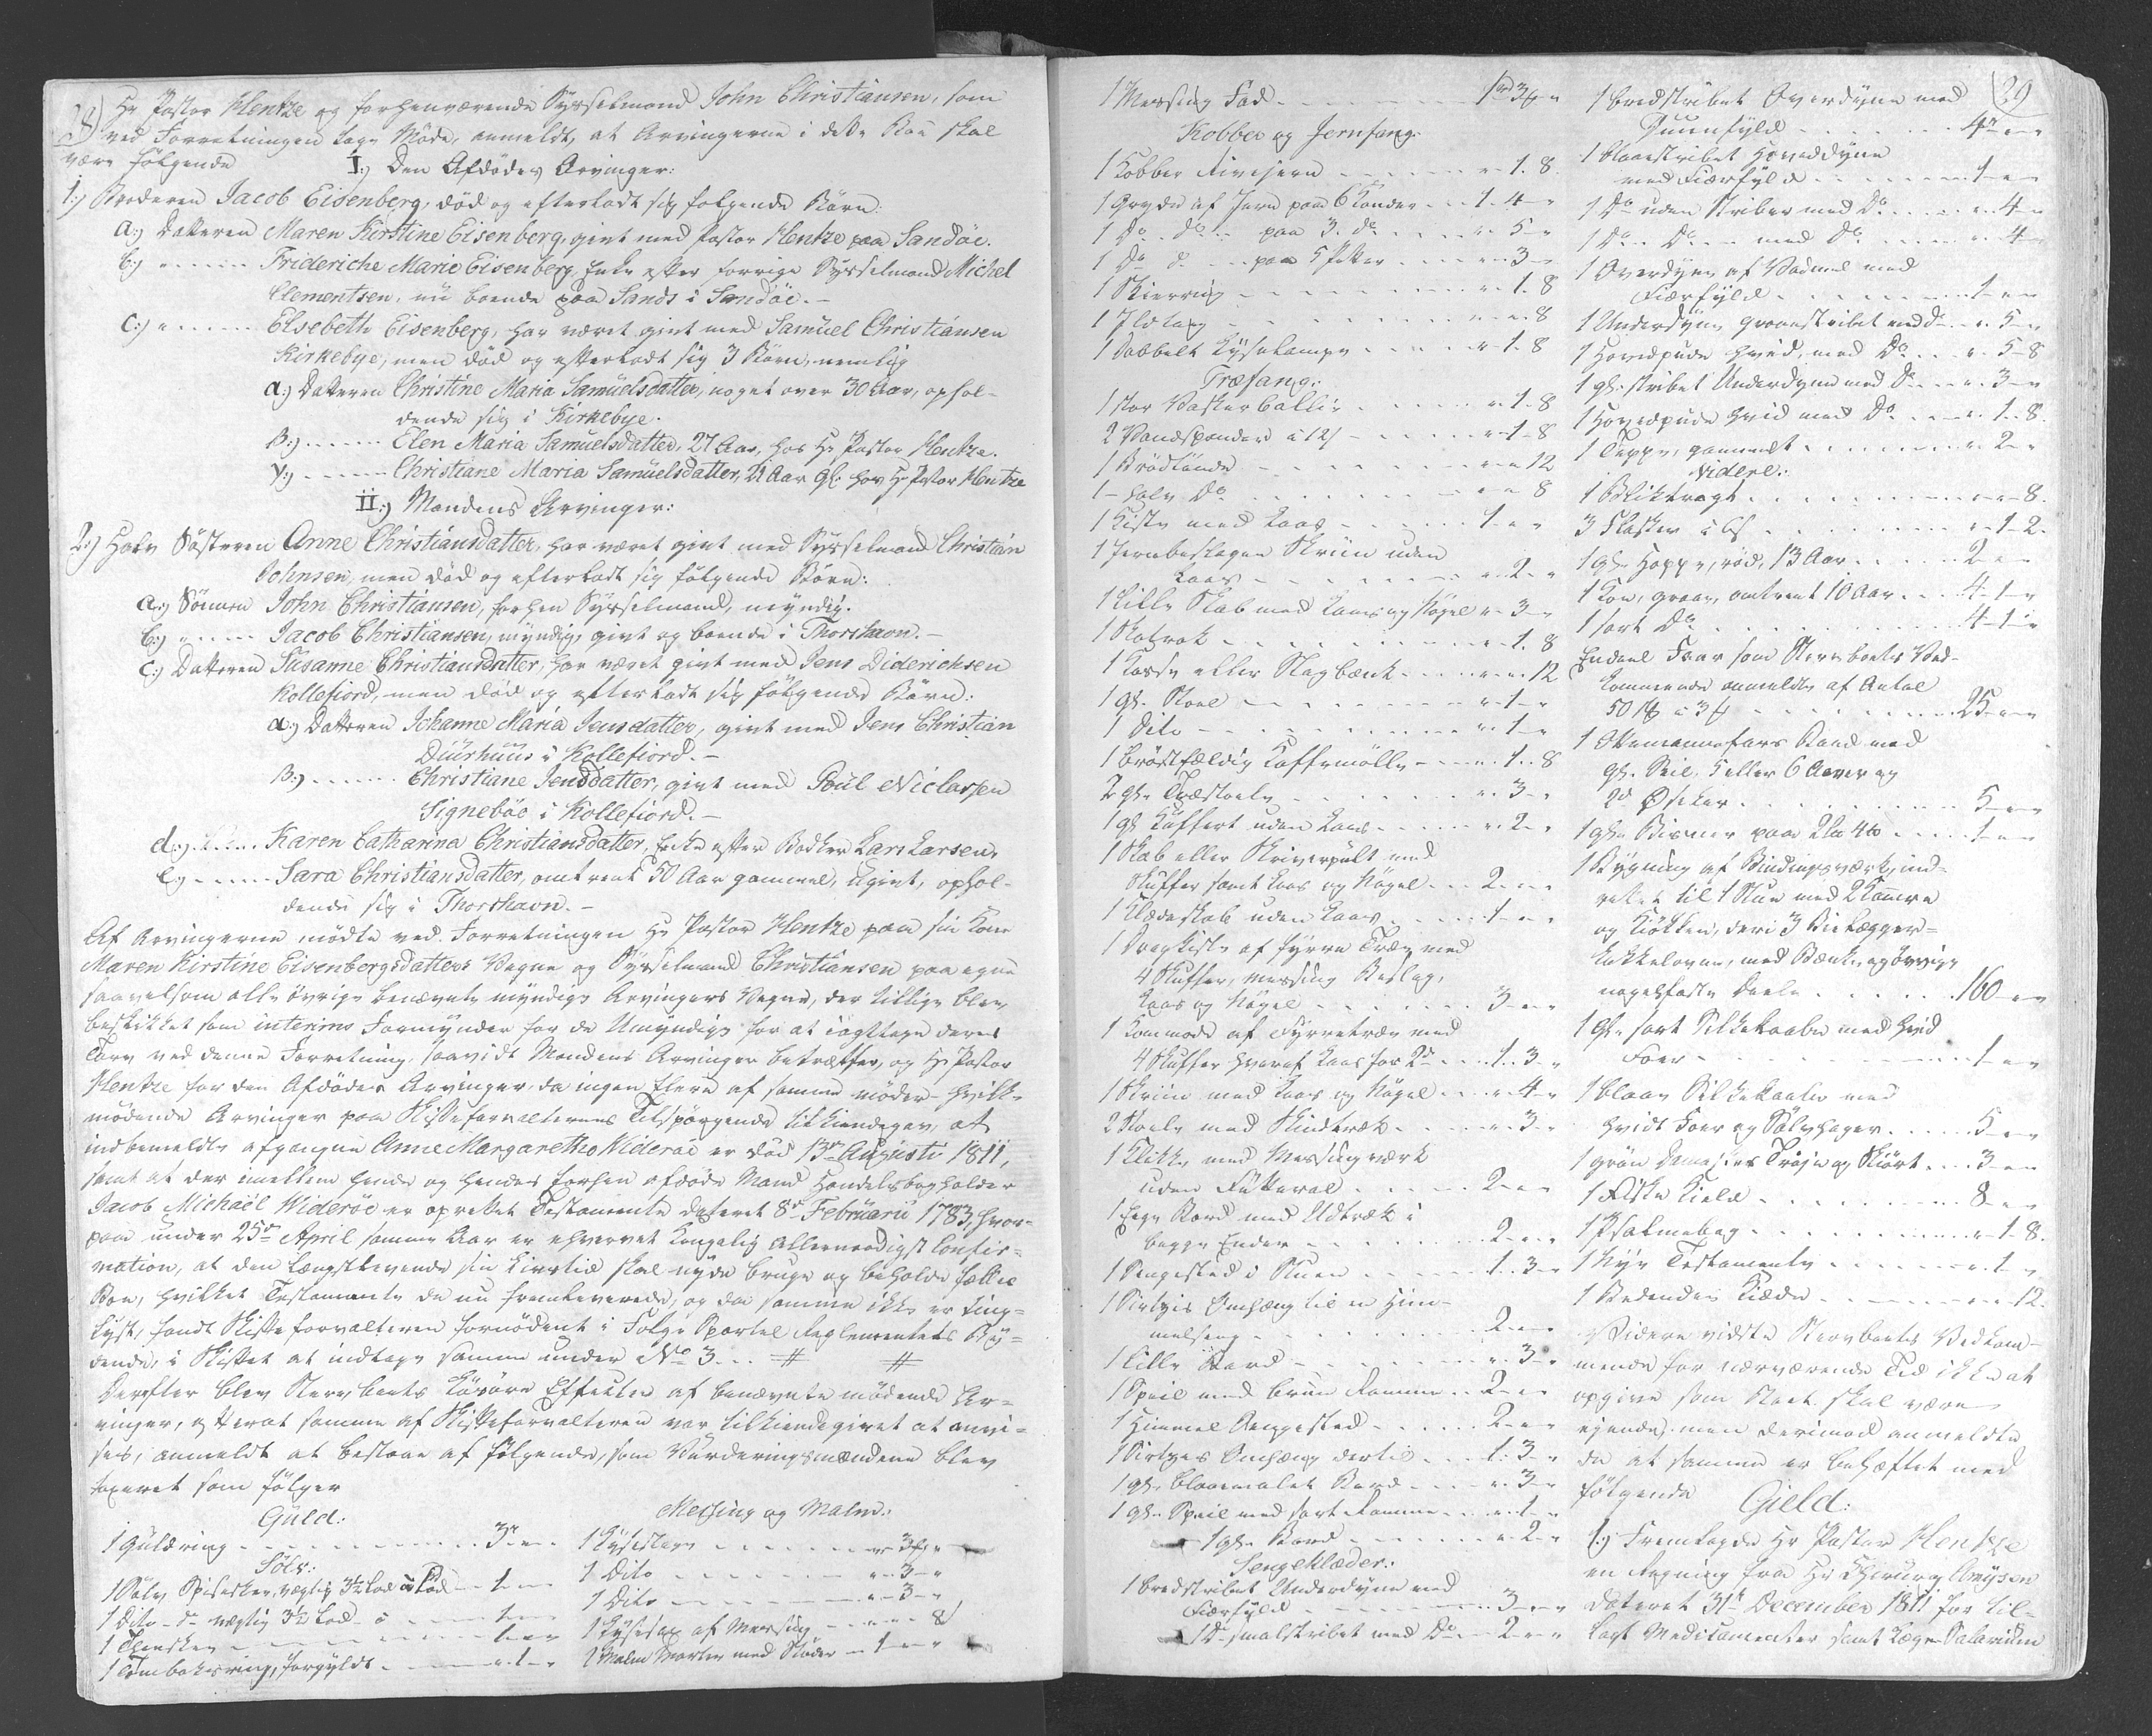 28)
Hr Pastor Hentze og forhenværende Sysselmand John Christiansen, som
ved Forretningen tage Møde, anmeldt, at Arvingerne i dette Boe skal
være følgende
I:) Den Afdødes Arvinger:
1:) Broderen Jacob Eisenberg, død og efterladt sig følgende Børn:
a:) Datteren Maren Kirstine Eisenberg, givt med Pastor Hentze paa Sandöe.
b:) " - - - - Frideriche Marie Eisenberg, Enke efter forrige Sysselmand Michel
Clementsen, nu boende paa Sands i Sandöe. -
C:) " - - - - Elsebeth Eisenberg, har været givt med Samüel Christiansen
Kirkebye, men død og efterladt sig 3 Børn, nemlig
α:) Datteren Christine Maria Samüelsdatter, noget over 30 Aar, ophol-
dende sig i Kirkebye.
β:) - - - - Elen Maria Samuelsdatter, 27 Aar, hos Hr Pastor Hentze.
γ:) - - - - Christiane Maria Samüelsdatter, 21 Aar gl: hos Hr Pastor Hentze
II:) Mandens Arvinger:
2:) Halv Sösteren Anne Christiansdatter, har været givt med Sysselmand Christian
Johnsen, men død og efterladt sig følgende Børn:
a:) Sönnen John Christiansen, forhen Sysselmand, myndig.
b:) " - - - Jacob Christiansen, myndig, givt og boende i Thorshavn. -
c:) Datteren Susanne Christiansdatter, har været givt med Jens Diderichsen
Kollefiord, men død og efterladt sig følgende Børn:
α:) Datteren Johanne Maria Jensdatter, givt med Jens Christian
Düürhuus i Kollefiord. -
β:) - - - - Christiane Jensdatter, givt med Poül Niclassen
Signeböe i Kollefiord. -
d:) - - - - Karen Catharina Christiansdatter, Enke efter Bødker Lars Larsen.
e:) - - - - Sara Christiansdatter, omtrent 50 Aar gammel, ugivt, ophol-
dende sig i Thorshavn. -
Af Arvingerne mødte ved Forretningen Hr Pastor Hentze paa sin Kone
Maren Kirstine Eisenbergsdatters Vegne og Sysselmand Christiansen paa egne
saavelsom alle øvrige benævnte myndige Arvingers Vegne, der tillige blev
beskikket som interims Formynder for de Umyndige for at iagttage deres
Tarv ved denne Forretning, saavidt Mandens Arvinger betræffer, og Hr Pastor
Hentze for den Afdødes Arvinger, da ingen flere af samme møder - hvilke
mødende Arvinger paa Skifteforvalterens Tilspørgende tilkiendegav, at
indbemeldte afgangne Anne Margarethe Wideröe er død 13de Augusti 1811,
samt at der imellem hende og hendes forhen afdøde Mand Handelsbogholder
Jacob Michaël Wideröe er oprettet Testamente dateret 8de Februarii 1783, hvor-
paa under 25de April samme Aar er ehvervet Kongelig allernaadigst Confir-
mation, at den længstlevende sin Livstid skal nyde bruge og beholde fælles
Boe, hvilket Testamente de nu fremleverede, og da samme ikke er ting-
lyst, fandt Skifteforvalteren fornødent i Følge Sportel Reglementets By-
dende, i Skiftet at indtage samme under No 3. . . # #
Derefter blev Stervboets Løsøre Effecter af benævnte mødende Ar-
vinger, efterat samme af Skifteforvalteren var tilkiendegivet at anvi-
ses, anmeldt at bestaae af følgende, som Vurderingsmændene blev
taxeret som følger
Guld:
1 Guldring - - - - 3 - " - "
Sölv:
1 Sölv Spiseskee, vægtig 3½ Lod - - 1 - -
1 Dito - do vægtig 3½ Lod - - 1 - -
1 Theeskee - - - - 1 - "
1 Tombaksring, forgyldt - - - - " - 1 - "
Messing og Malm:
1 Lysestage - - - - " 3 "
1 Dito - - - - " - 3 - "
1 Dito - - - - " - 3 - "
1 Lysesax af Messing - - " - " - 8
2 Malm Morter med Stöder - 1 - " - "
1 Messing Fad - - - - 1 3 "
Kobber og Jernfang:
1 Kobber Rivejern - - - - " - 1. 8.
1 Gryde af Jern paa 6 Kander - - 1 - 4 - "
1 Do - Do - paa 3 do - - - " 5 - "
1 Do do - - paa 5 Potter - - - " - 3 - "
1 Skierring - - - - " - 1. 8
1 Ildtang - - - - " - " - 8
1 Dobbelt Lyselampe - - - - " - 1 - 8
Træfang:
1 stor Vasker ballie - - - - " - 1 - 8
2 Vandspander à 12 - - - - " - 1 - 8
1 Brödtønde - - - - " - " 12
1 - halv Do - - - - " - " 8
1 Kiste med Laas - - - - 1 - " - "
1 Jernbeslagen Skriin uden
Laas - - - - " - 2 - "
1 lille Skab med Laas og Nøgel " - 3 - "
1 Rok - - - - " - 1. 8
1 Kasse eller Slagbænk - - - - " - 12
1 gl. Stoel - - - - " - 1 - "
1 Dito - - - - " - 1 - "
1 brøstfældig Kaffemölle - - - " - 1. . 8
2 gl: Træstoele - - - - " - 3 - "
1 gl: Küffert uden Laas - - - " - 2 - "
1 Skab eller Skriverpült med
Skuffer samt Laas og Nøgel - - 2 - " - "
1 Klædeskab uden Laas - - - 1 - " - "
1 Dragkiste af Fyrre Træe med
4 Skuffer, messing Beslag,
Laas og Nøgel - - - - 3 - " - "
1 Kommode af Fyrretræe med
4 Skuffer hvoraf Laas for 2de - - 1 - 3 - "
1 Skriin med Laas og Nøgel - - " - 4 - "
2 Stoele med Skindtræk - - - " - 3 - "
1 Klokke med Messingværk
uden Futteral - - - - 2 - " - "
1 Eege Bord med Udtræk i
begge Ender - - - - 2 - " - "
1 Sengested i Stuen - - - 1 - 3 - "
1 Sirtzis Omhæng til en Him-
melseng - - - - 2 - " - "
1 lille Bord - - - - " - 3 - "
1 Speil med bruun Ramme - - 2 - " - "
1 Himmel Sengested - - - 2 - " - "
1 Sirtzes Omhæng dertil - - 1 - 3 - "
1 gl: blaaemalet Bord - - - " - 3 - "
1 gl: Speil med sort Ramme - - " - 1 - "
1 gl: Bord - - - - " - 2 - "
Sengeklæder:
1 bredstribet Underdyne med
Fiærfyld - - - - 3 - " - "
1 Do smalstribet med Do - - 2 - " - "
29)
1 bredstribet Overdyne med
Duunfyld - - - - 4 - " - "
1 blaaestribet Hoveddyne
med Fiærfyld - - - - 1 - "
1 Do uden Striber med Do - - - " - 4 - "
1 Do - Do - - med Do - - - " - 4 - "
1 Overdyne af Vadmel med
Fiærfyld - - - - 1 - " - "
1 Underdyne graaestribet med do - " - 5 - "
1 Hovedpude hvid, med Do - - " - 5 - 8
1 gl: stribet Underdyne med Do - - " - 3 - "
1 Hovedpude hvid med Do - - " - 1 - 8.
1 Teppe, gammelt - - - " - 2 - "
Videre:
1 Bliktragt - - - - " - " - 8.
3 Flasker à 6 - - - - " - 1 - 2.
1 gl: Hoppe, rød, 13 Aar - - - 2 - "
1 Koe, graae, omtrent 10 Aar - - 4 - 1 - "
1 sort Do - - - - 4 - 1 - "
Endeel Faar som Stervboets Ved-
kommende anmeldte af Antal
50 à 3 - - - - 25 - " - "
1 Baad med
gl: Seil, 5 eller 6 Aarer og
2de Øskar - - - - 5 - " - "
1 gl: Bismer paa - - - 1 - " - "
1 Bygning af Bindingsværk, ind-
rettet til 1 Stue med 2 Kamre
og Kiökken, deri 3 Bielægger-
kakkelovne, med Bænke og øvrige
nagelfaste Deele - - - - 160 - " - "
1 gl: sort Silkekaabe med hvid
Foer - - - - 1 - " - "
1 blaae Silkekaabe med
hvidt Foer og Sølvhager - - - 5 - " - "
1 grön Damaskes Tröje og Skiört - - 3 - " - "
1 - - - - 8 - "
1 Psalmebog - - - - " - 1 - 8.
1 Nye Testamente - - - - " - 1 - "
1 Kiæde - - - - " - 12.
Videre vidste Stervboets Vedkom-
mende for nærværende Tid ikke at
opgive som Boet skal være
ejende, men derimod anmeldte
de at samme er behæftet med
følgende Gield:
1:) Fremlagde Hr Pastor Hentze
en Regning fra Hr Chirurg
dateret 31te December 1811 for til-
lagt Medicamenter samt Læge Salarium